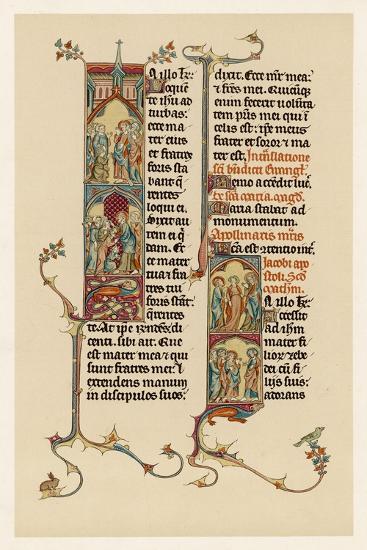 N illo tꝑe.
Loquen
te ihu ad
turbas:
ecce ma
ter eius
et fratres
foris sta
bant q̄
rentes
loqui ei.
Dixit au
rem ei q̄
dam. Et
ce mater
tua ⁊ fra
tres tui
foris stāt
q̄rentes
te. At ipe rn̄dēs di
centi. sibi ait. Que
est mater mea ⁊ qui
sunt fratres mei. Et
extendens manum
in discipulos suos:
dixit. Ecce mr̄ mea:
⁊ fr̄es mei. Quicūqꝫ
enim fecerit volūta
tem pris mei qui ī
celis est: ipe meus
frater et soror ⁊ ma
ter est. In trāslatione
sci bn̄dicti Ewangl'
Nemo accendit luc̄
Maria stabat ad
monumentum.
Apollinaris mris
Jacobi apo
stoli. Scd
math̄m.
N illo tꝑe.
Accessit
ad ihm
mater fi
lior zebe
dei cū fi
liis suis:
adorans